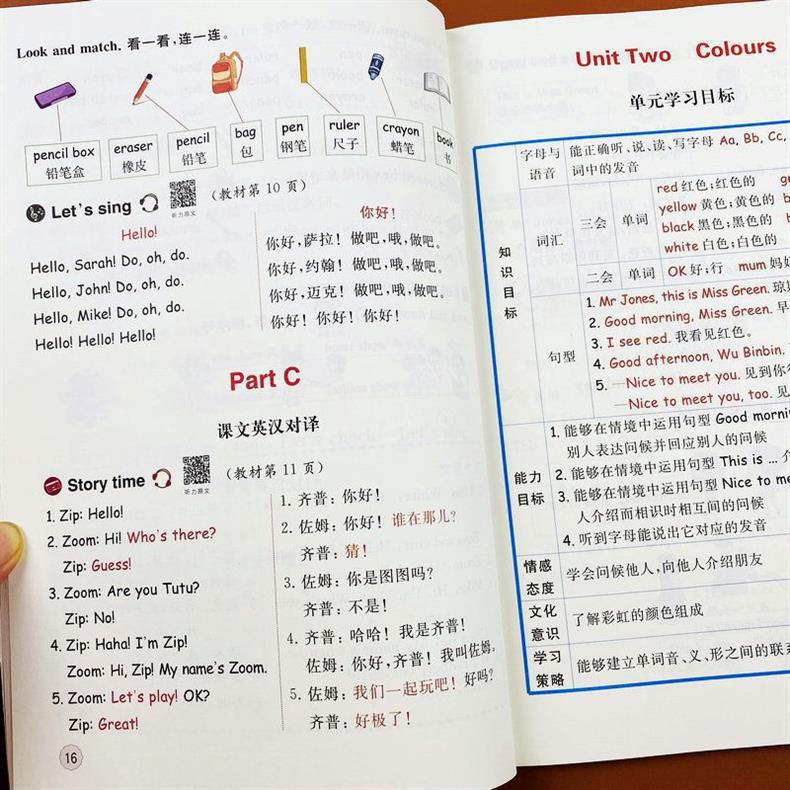 Look and match. 看一看,连一连。
pencil box
铅笔盒
eraser
橡皮
pencil
铅笔
bag
包
pen
钢笔
ruler
尺子
crayon
蜡笔
book
书
Let's sing
听力原文
(教材第 10 页)
Hello!
Hello, Sarah! Do, oh, do.
Hello, John! Do, oh, do.
Hello, Mike! Do, oh, do.
Hello! Hello! Hello!
你好!
你好,萨拉! 做吧,哦,做吧。
你好,约翰! 做吧,哦,做吧。
你好,迈克! 做吧,哦,做吧。
你好! 你好! 你好!
Part C
课文英汉对译
Story time
听力原文
(教材第 11 页)
1. Zip: Hello!
2. Zoom: Hi! Who's there?
Zip: Guess!
3. Zoom: Are you Tutu?
Zip: No!
4. Zip: Haha! I'm Zip!
Zoom: Hi, Zip! My name's Zoom.
5. Zoom: Let's play! OK?
Zip: Great!
1. 齐普: 你好!
2. 佐姆: 你好! 谁在那儿?
齐普: 猜!
3. 佐姆: 你是图图吗?
齐普: 不是!
4. 齐普: 哈哈! 我是齐普!
佐姆: 你好,齐普! 我叫佐姆。
5. 佐姆: 我们一起玩吧! 好吗?
齐普: 好极了!
16
Unit Two Colours
单元学习目标
知识目标
字母与语音
能正确听、说、读、写字母 Aa, Bb, Cc,
词中的发音
词汇
三会
单词
red 红色;红色的
yellow 黄色;黄色的
black 黑色;黑色的
white 白色;白色的
二会
单词
OK 好;行 mum 妈
句型
1. Mr Jones, this is Miss Green.
2. Good morning, Miss Green. 早
3. I see red. 我看见红色。
4. Good afternoon, Wu Binbin.
5. —Nice to meet you. 见到你
—Nice to meet you, too. 见
能力目标
1. 能够在情境中运用句型 Good morni
别人表达问候并回应别人的问候
2. 能够在情境中运用句型 This is … 介
3. 能够在情境中运用句型 Nice to me
人介绍而相识时相互间的问候
4. 听到字母能说出它对应的发音
情感态度
学会问候他人,向他人介绍朋友
文化意识
了解彩虹的颜色组成
学习策略
能够建立单词音、义、形之间的联系